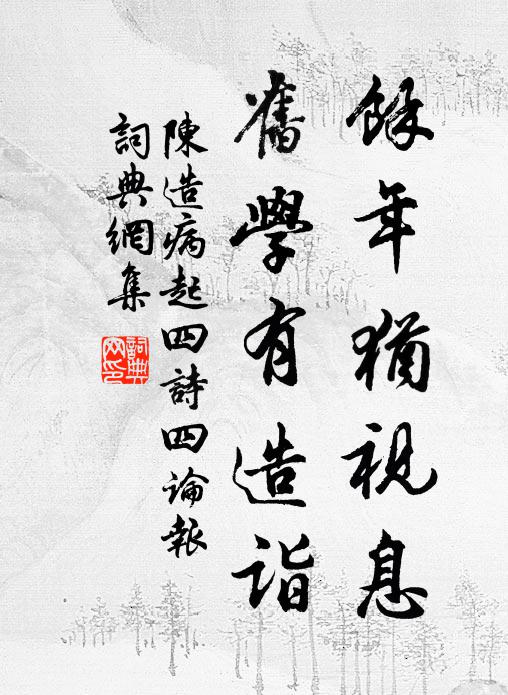 餘年猶視息
舊學有造詣
陳造病起四詩四論報
詞典網集
詞典网印